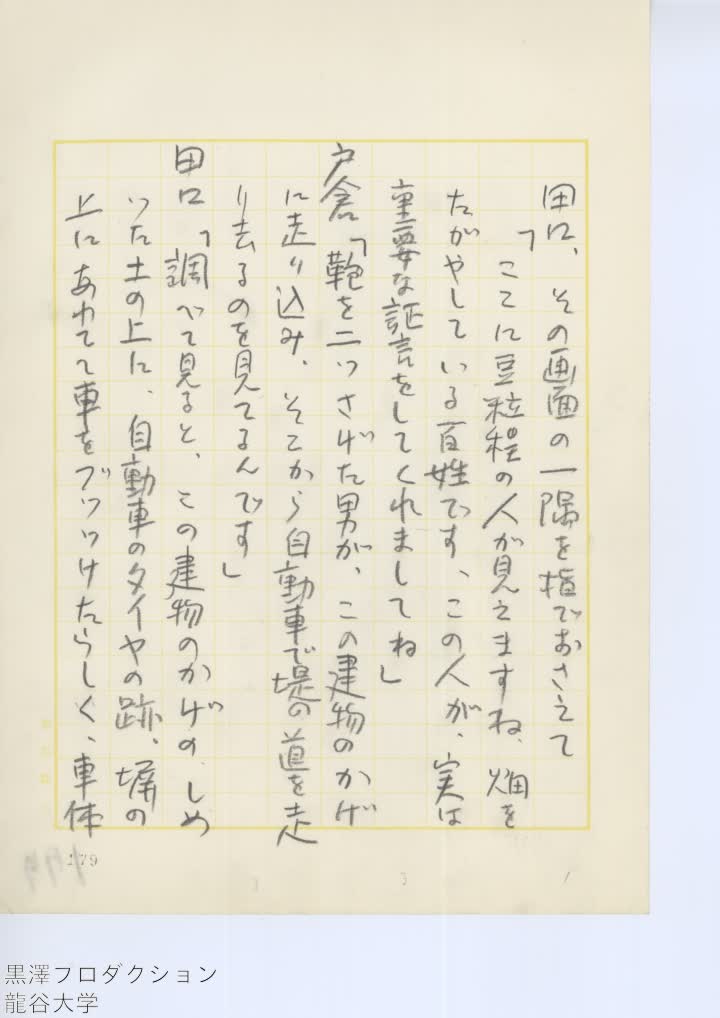 田口、その画面の一隅を指でおさえて
「ここに豆粒程の人が見えますね、畑を
たがやしている百姓です、この人が、実は
重要な証言をしてくれましてね」
戸倉「鞄を二つさげた男が、この建物のかげ
に走り込み、そこから自動車で堤の道を走
り去るのを見てるんです」
田口「調べて見ると、この建物のかげの、しめ
った土の上に、自動車のタイヤの跡、塀の
上にあわてて車をブッつけたらしく、車体
179
黒澤プロダクション
龍谷大学